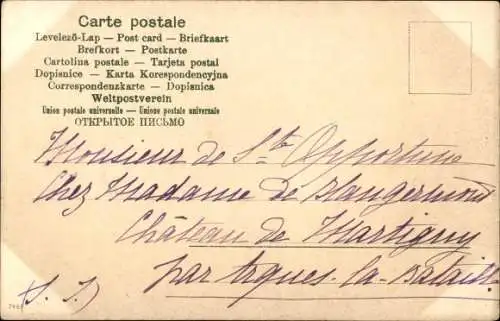 Carte postale
Levelező-Lap — Post card — Briefkaart
Brefkort — Postkarte
Cartolina postale — Tarjeta postal
Dopisnice — Karta Korespondencyjna
Correspondenzkarte — Dopisnica
Weltpostverein
Union postale universelle — Unione postale universale
ОТКРЫТОЕ ПИСЬМО
Monsieur de Ste Opportune
Chez Madame de
Château de Martigny
par Arques-la-Bataille
(S. I.)